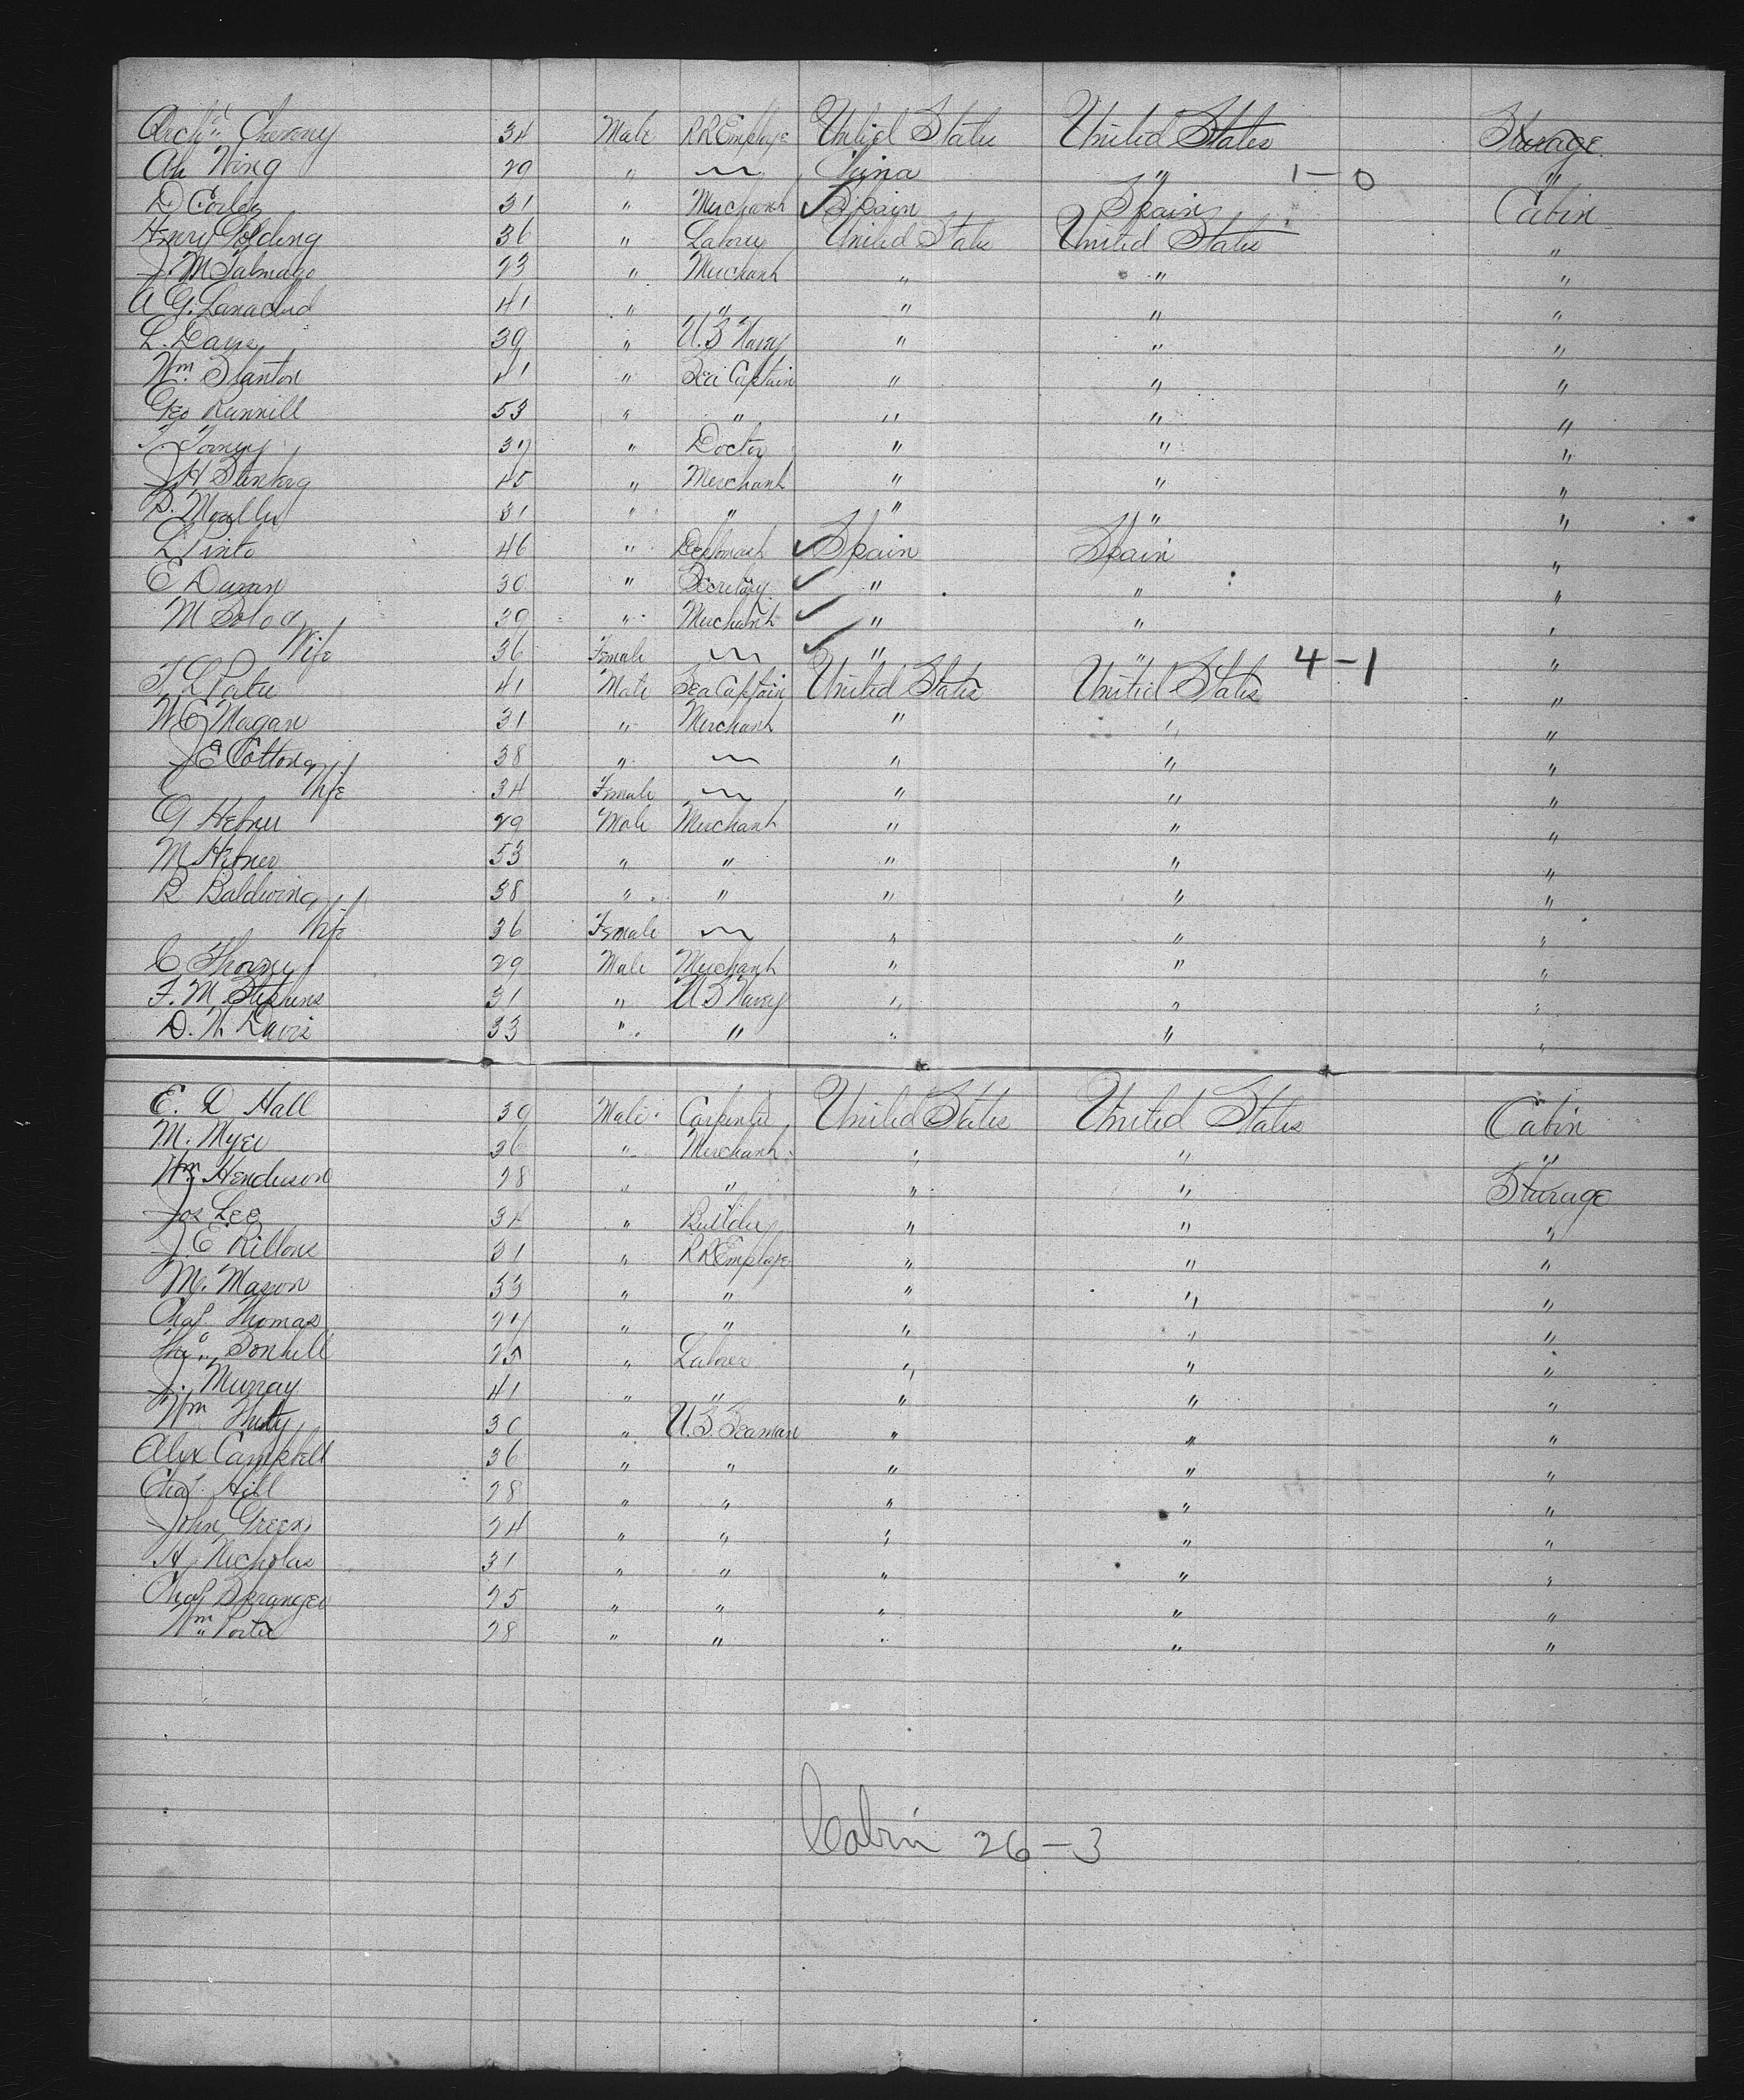 Archd Chevany 34 Male RR Employe United States United States Sterage
Ah Wing 29 " ~ China " 1-0 "
D Corley 31 " Merchant ✓ Spain Spain Cabin
Henry Golding 36 " Laborer United States United States "
J. M Talmage 23 " Merchant " " "
A G. 41 " " " " "
L. Davis 39 " U.S Navy " " "
Wm. Stanton 41 " Sea Captain " " "
Geo Runnill 53 " " " " "
T. 37 " Doctor " " "
J H 45 " Merchant " " "
31 " " " " "
L Pinto 46 " ✓ Spain Spain "
E Duran 30 " Secretary ✓ " " "
M Solo & 39 " Merchant ✓ " " "
Wife 36 Female ~ ✓ " " 4-1 "
T L 41 Male Sea Captain United States United States "
W E Magan 31 " Merchant " " "
J E Cotton & 38 " ~ " " "
Wife 34 Female ~ " " "
G Hefner 29 Male Merchant " " "
M Hefner 53 " " " " "
B Baldwin & 38 " " " " "
Wife 36 Female ~ " " "
C Thorny 29 Male Merchant " " "
F. M. Stephens 31 " U S Navy " " "
D. N Davis 33 " " " " "
E. D Hall 39 Male Carpenter United States United States Cabin
M. Myer 36 " Merchant " " "
Wm. Henderson 28 " " " " Sterage
Jos Lee 34 " Builder " " "
J. E Rillons 31 " RR Employe " " "
M. Mason 33 " " " " "
Chas. Thomas 27 " " " " "
Tho. Bonhill 25 " Laborer " " "
J. Murray 41 " " " " "
Wm 30 " U.S Seaman " " "
Alex Campbell 36 " " " " "
Chas. Hill 28 " " " " "
John Green 24 " " " " "
H. Nicholas 31 " " " " "
Chas Beranger 25 " " " " "
Wm. Porter 28 " " " " "
Cabin 26-3